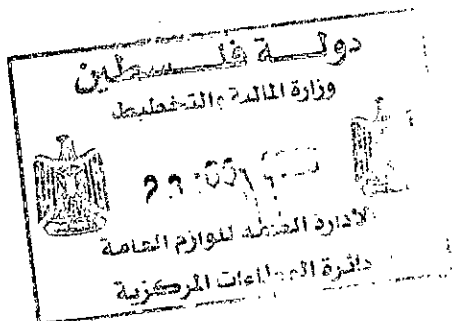 دولة فلسطين
وزارة المالية والتخطيط
الإدارة العامة للوازم العامة
دائرة العطاءات المركزية